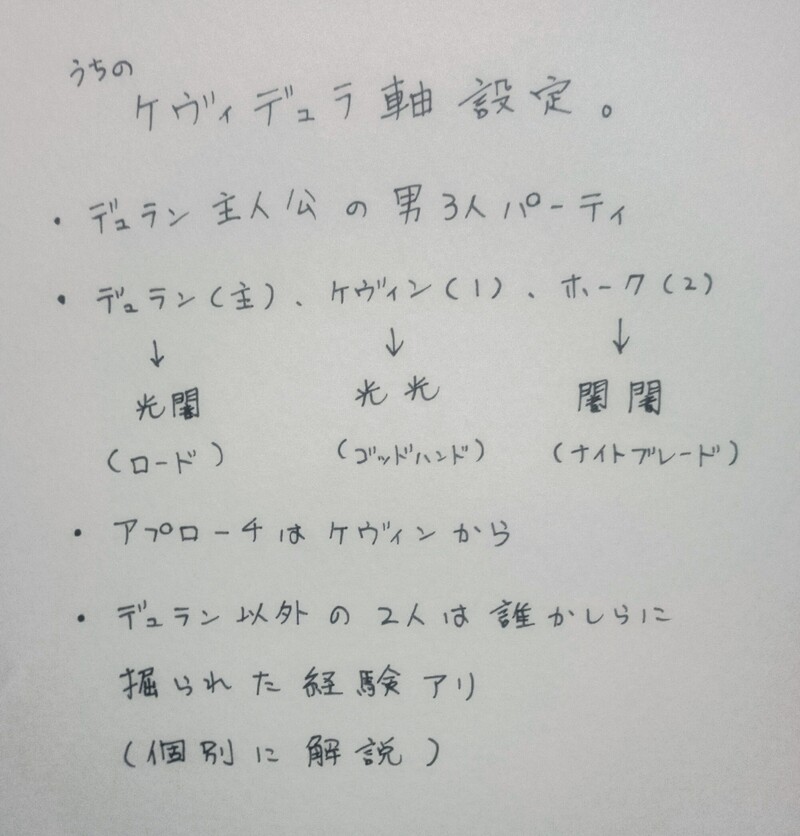 うちの
ケヴィデュラ軸 設定。
・デュラン主人公の男3人パーティ
・デュラン(主)、ケヴィン(1)、ホーク(2)
↓ ↓ ↓
光闇 光光 闇闇
(ロード) (ゴッドハンド) (ナイトブレード)
・アプローチはケヴィンから
・デュラン以外の2人は誰かしらに
掘られた経験アリ
(個別に解説)